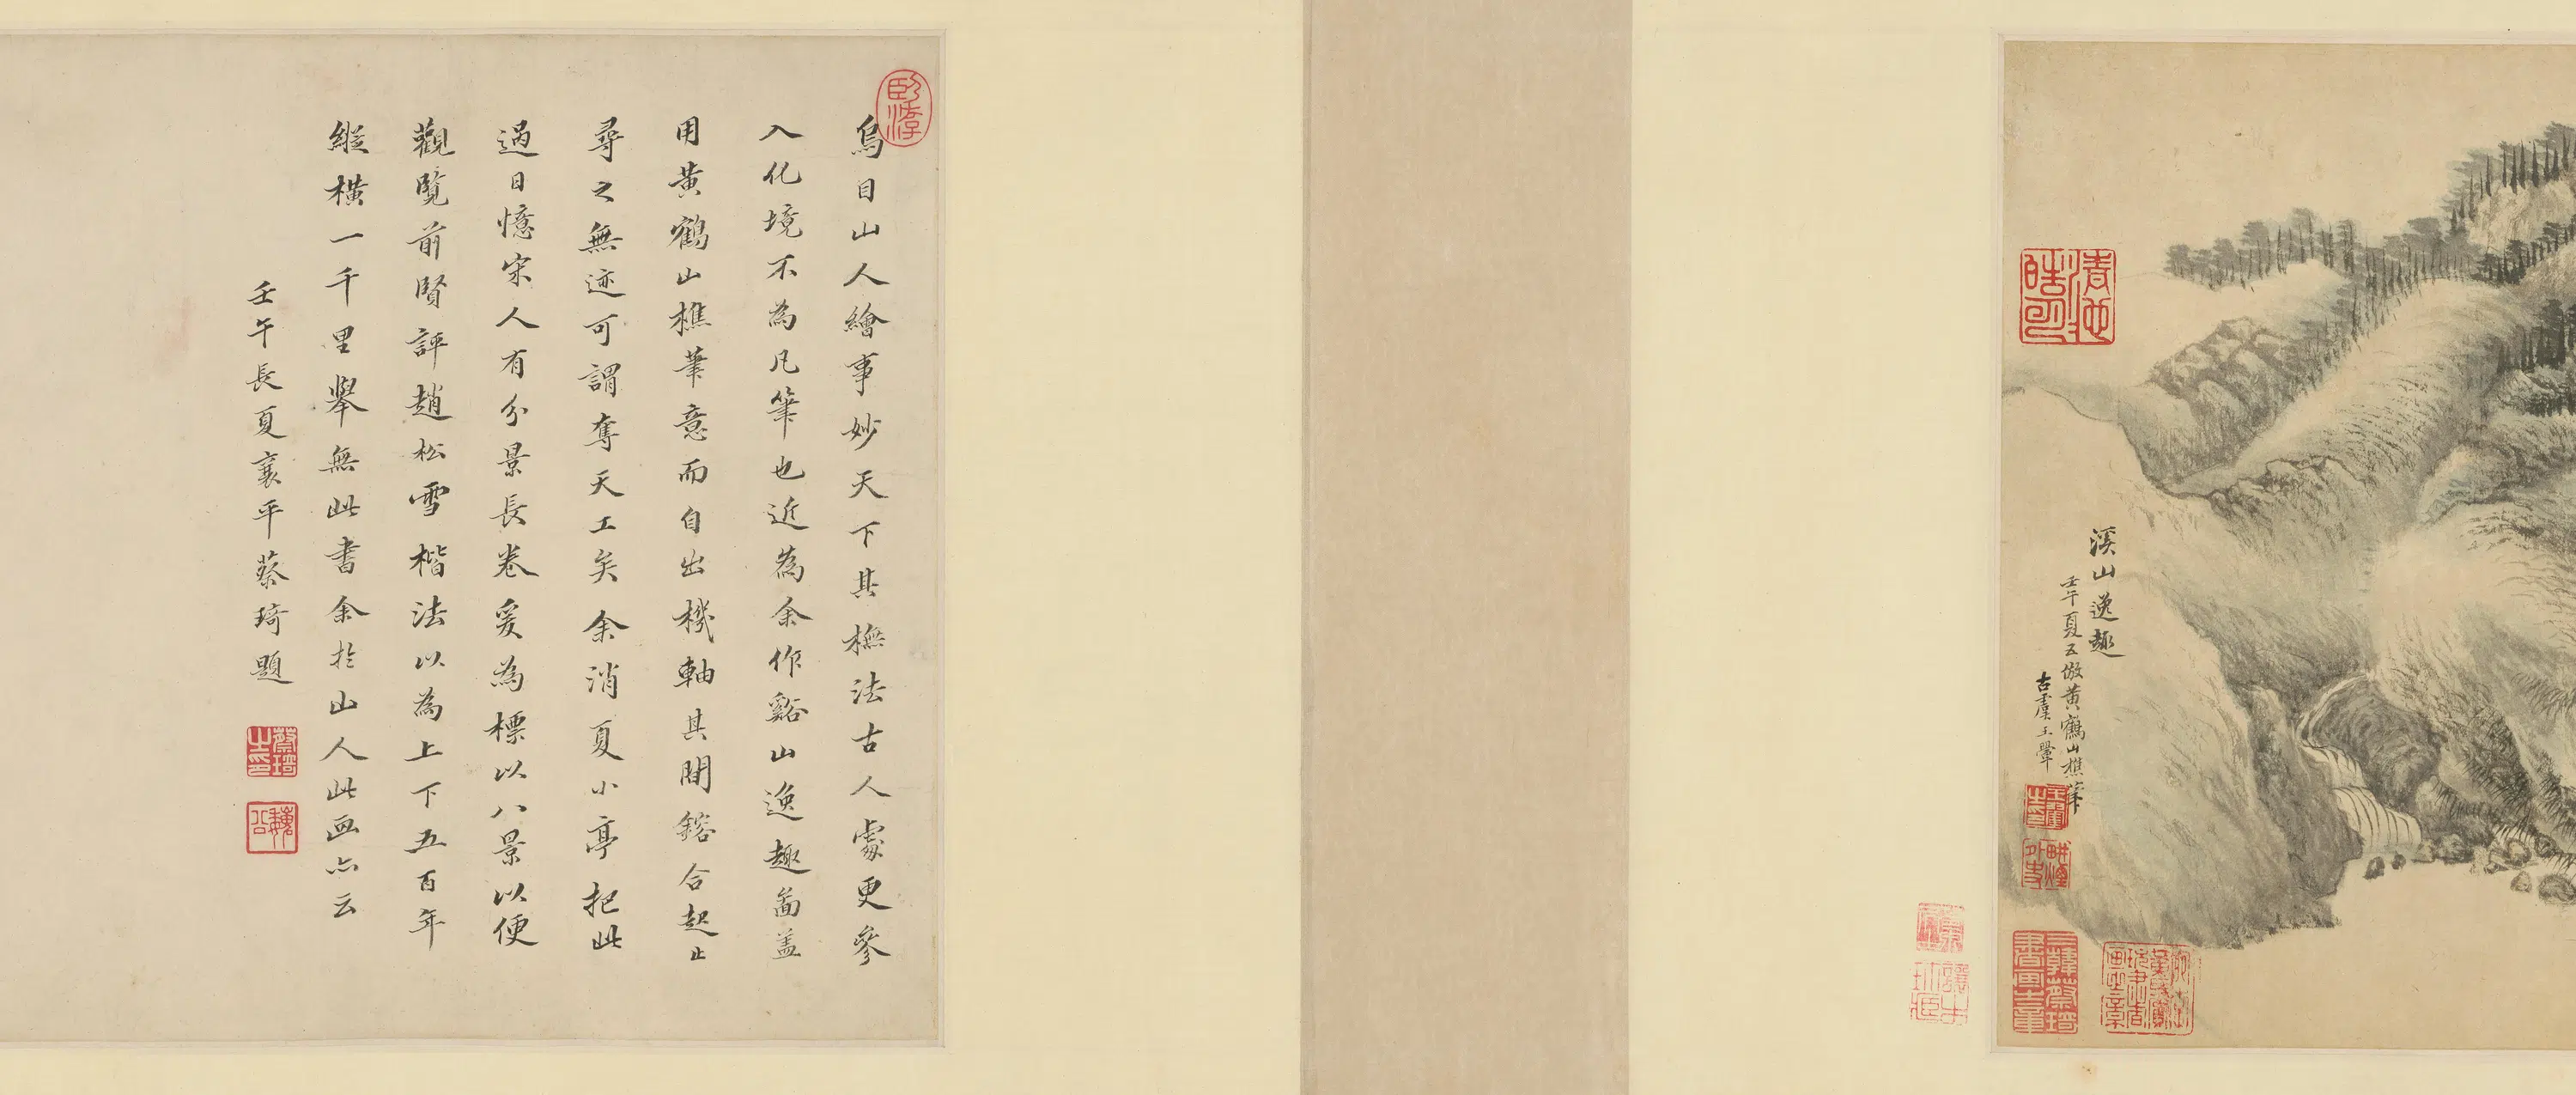 溪山逸趣
壬午夏五倣黃鶴山樵筆
古虞王翬
烏目山人繪事妙天下其橅法古人處更參
入化境不為凡筆也近為余作谿山逸趣啚盖
用黃鶴山樵筆意而自出機軸其間鎔合起止
尋之無迹可謂奪天工矣余消夏小亭把此
過日憶宋人有分景長卷爰為標以八景以便
觀覽前賢評趙松雪楷法以為上下五百年
縱橫一千里舉無此書余於山人此画亦云
壬午長夏襄平蔡琦題
蔡琦之印